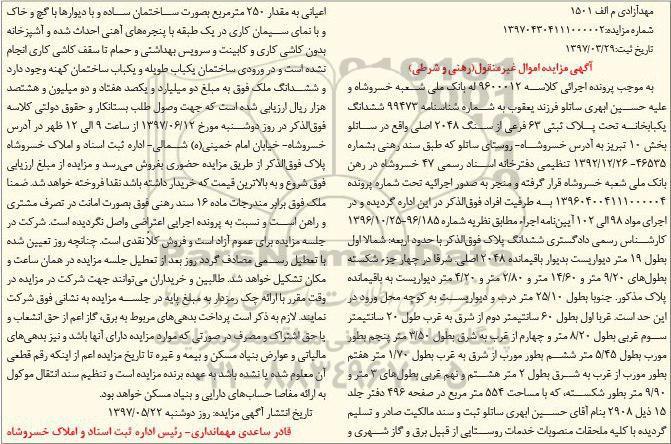 مهدآزادی م الف ۱۵۰۱
شماره مزایده: ۱۳۹۷۰۴۳۰۴۱۱۱۰۰۰۰۰۲
تاریخ ثبت: ۱۳۹۷/۰۳/۲۹
آگهی مزایده اموال غیرمنقول(رهنی و شرطی)
به موجب پرونده اجرائی کلاسه ۹۶۰۰۰۱۲ له بانک ملی شعبه خسروشاه و
علیه حسین ابهری ساتلو فرزند یعقوب به شماره شناسنامه ۹۹۴۷۳ ششدانگ
یکبابخانه تحت پلاک ثبتی ۶۳ فرعی از سنگ ۲۰۴۸ اصلی واقع در ساتلو
بخش ۱۰ تبریز به آدرس خسروشاه- روستای ساتلو که طبق سند رهنی بشماره
۴۶۵۳۵- ۱۳۹۲/۱۲/۲۶ تنظیمی دفترخانه اسناد رسمی ۴۷ خسروشاه در رهن
بانک ملی شعبه خسروشاه قرار گرفته و منجر به صدور اجرائیه تحت شماره پرونده
۱۳۹۶۰۴۰۰۴۱۱۱۰۰۰۰۰۴ به طرفیت افراد فوق‌الذکر در این اداره گردیده و در
اجرای مواد ۹۸ الی ۱۰۲ آیین‌نامه اجراء مطابق نظریه شماره ۹۶/۱۸۵-۱۳۹۶/۱۰/۲۵
کارشناس رسمی دادگستری ششدانگ پلاک فوق‌الذکر با حدود اربعه: شمالا اول
بطول ۱۹ متر دیواریست بدیوار باقیمانده ۲۰۴۸ اصلی شرقا در چهار جزء شکسته
بطول‌های ۹/۲۰ متر و ۱۴/۶۰ متر و ۲/۸۰ متر و ۴/۲۰ متر دیواریست به باقیمانده
پلاک مذکور. جنوبا بطول ۲۵/۱۰ متر درب و دیواریست به کوچه محل ورود در
این حد است. غربا اول بطول ۶۰ سانتیمتر دوم از شرق به غرب طول ۲۰ سانتیمتر
سوم غربی بطول ۸/۲۰ متر و چهارم از غرب به شرق بطول ۳/۵۰ متر پنجم بطور
مورب بطول ۵/۴۵ متر ششم بطور مورب از شرق به غرب بطول ۱/۷۰ متر هفتم
بطور مورب از غرب به شرق بطول ۲ متر هشتم و نهم غربی بطول‌های ۳ متر و
۹/۲۰ متر بطور شکسته، که با مساحت ۵۵۴ متر مربع در صفحه ۴۹۶ دفتر جلد
۱۵ ذیل ۲۹۰۸ بنام آقای حسین ابهری ساتلو ثبت و سند مالکیت صادر و تسلیم
گردیده با کلیه ملحقات منصوبات خدمات روستایی از قبیل برق و گاز شهری و
اعیانی به مقدار ۲۵۰ مترمربع بصورت ساختمان ساده و با دیوارها با گچ و خاک
و با نمای سیمان کاری در یک طبقه با پنجره‌های آهنی احداث شده و آشپزخانه
بدون کاشی کاری و کابینت و سرویس بهداشتی و حمام تا سقف کاشی کاری انجام
نشده است و در ورودی ساختمان یکباب طویله و یکباب ساختمان کهنه وجود دارد
و ششدانگ ملک فوق به مبلغ دو میلیارد و یکصد هفتاد و دو میلیون و هشتصد
هزار ریال ارزیابی شده است که جهت وصول طلب بستانکار و حقوق دولتی کلاسه
فوق‌الذکر در روز دوشنبه مورخ ۱۳۹۷/۰۶/۱۲ از ساعت ۹ الی ۱۲ ظهر در آدرس
خسروشاه- خیابان امام خمینی(ه) شمالی- اداره ثبت اسناد و املاک خسروشاه
پلاک فوق‌الذکر از طریق مزایده حضوری بفروش می‌رسد و مزایده از مبلغ ارزیابی
فوق شروع و به بالاترین قیمت که خریدار داشته باشد نقدا فروخته خواهد شد. ضمنا
ملک فوق برابر مندرجات ماده ۱۶ سند رهنی فوق بصورت امانت در تصرف مشتری
و راهن است و نسبت به پرونده اجرایی اعتراضی واصل نگردیده است. شرکت در
جلسه مزایده برای عموم آزاد است و فروش کلاً نقدی است. چنانچه روز تعیین شده
با تعطیل رسمی مصادف گردد روز بعد از تعطیل جلسه مزایده در همان ساعت و
مکان تشکیل خواهد شد. طالبین و خریداران می‌توانند جهت شرکت در مزایده در
وقت مقرر با ارائه چک رمزدار به مبلغ پایه در جلسه مزایده به نشانی فوق شرکت
نمایند. لازم به ذکر است پرداخت بدهی‌های مربوط به برق، گاز اعم از حق انشعاب و
یا حق اشتراک و مصرف در صورتی که مورد مزایده دارای آنها باشد و نیز بدهی‌های
مالیاتی و عوارض بنیاد مسکن و بیمه و غیره تا تاریخ مزایده اعم از اینکه رقم قطعی
آن معلوم شده یا نشده باشد به عهده برنده مزایده است و تنظیم سند انتقال موکول
به ارائه مفاصا حساب‌های دارایی و بنیاد مسکن خواهد بود.
تاریخ انتشار آگهی مزایده: روز دوشنبه ۱۳۹۷/۰۵/۲۲
قادر ساعدی مهمانداری- رئیس اداره ثبت اسناد و املاک خسروشاه